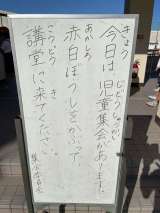 きょう
今日は、児童集会があります。
じどうしゅうかい
赤白ぼうしをかぶって、
あかしろ
講堂に来てください。
こうどう
き